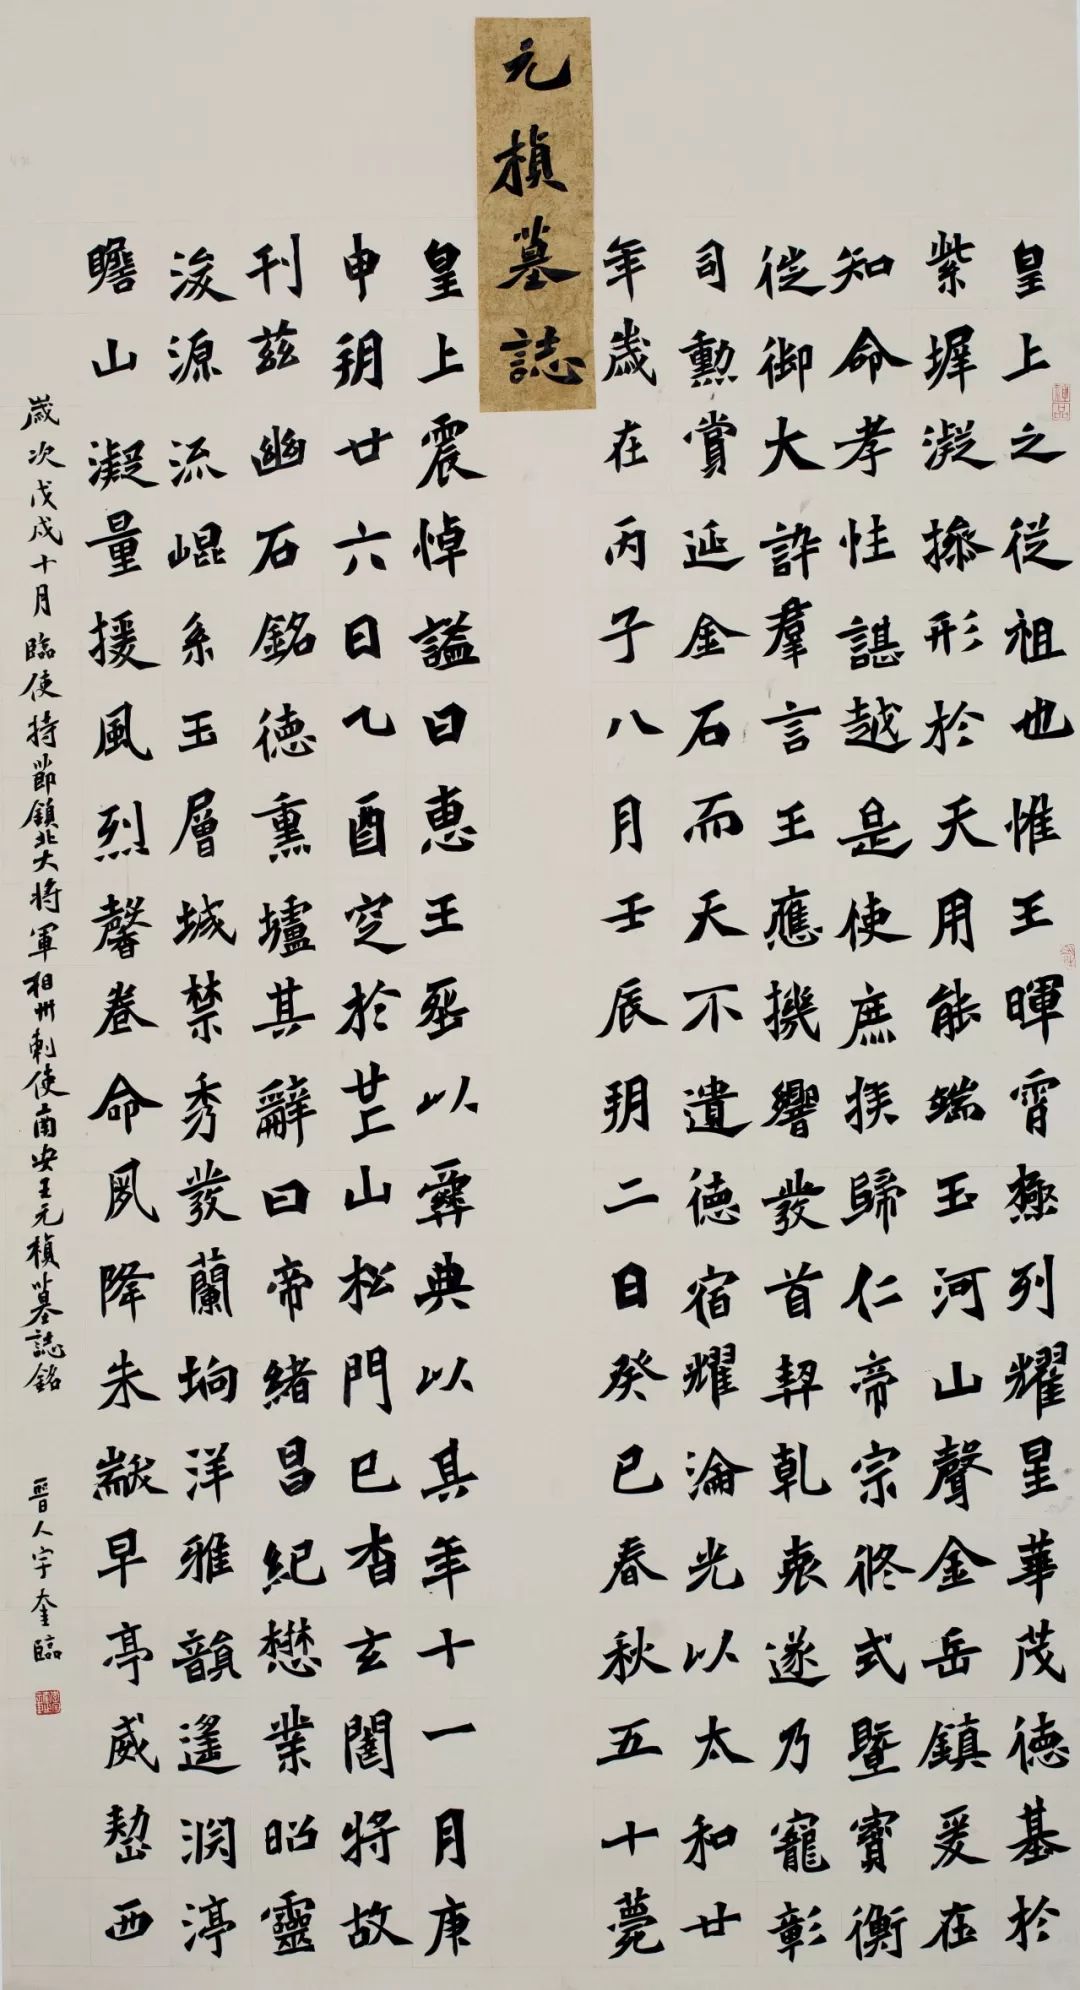 元楨墓誌
皇上之從祖也惟王暉霄極列耀星華茂德基於
紫墀凝操形於天用能端玉河山聲金岳鎮爰在
知命孝性諶越是使庶族歸仁帝宗攸式暨寶衡
從御大訏羣言王應機響發首契乾衷遂乃寵彰
司勳賞延金石而天不遺德宿耀淪光以太和廿
年歲在丙子八月壬辰朔二日癸巳春秋五十薨
皇上震悼謚曰惠王葬以彝典以其年十一月庚
申朔廿六日乙酉窆於芒山松門已杳玄闥將故
刊茲幽石銘德熏壚其辭曰帝緒昌紀懋業昭靈
浚源流崐系玉層城禁秀發蘭坰洋雅韻遙潤渟
瞻山凝量援風烈馨卷命夙降朱黻早亭威懾西
歲次戊戌十月臨使持節鎮北大將軍相州刺使南安王元楨墓誌銘 晉人宇奎臨